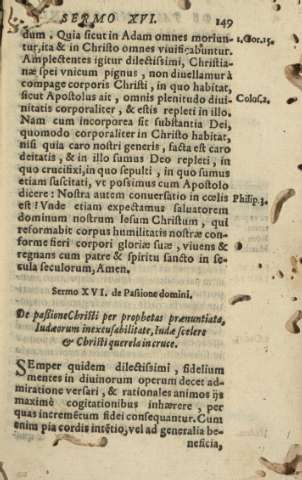 SERMO XVI. 149
dum. Quia sicut in Adam omnes moriun- 1. Cor. 15.
tur, ita & in Christo omnes viuificabuntur.
Amplectentes igitur dilectissimi, Christia-
næ spei vnicum pignus, non diuellamur à
compage corporis Christi, in quo habitat,
sicut Apostolus ait, omnis plenitudo diui- Colos. 2.
nitatis corporaliter, & estis repleti in illo.
Nam cum incorporea sit substantia Dei,
quomodo corporaliter in Christo habitat,
nisi quia caro nostri generis, facta est caro
deitatis, & in illo sumus Deo repleti, in
quo crucifixi, in quo sepulti, in quo sumus
etiam suscitati, vt possimus cum Apostolo
dicere: Nostra autem conuersatio in cœlis Philip. 3.
est: Vnde etiam expectamus saluatorem
dominum nostrum Iesum Christum, qui
reformabit corpus humilitatis nostræ con-
forme fieri corpori gloriæ suæ, viuens &
regnans cum patre & spiritu sancto in se-
cula seculorum, Amen.
Sermo XVI. de Passione domini.
De passione Christi per prophetas prænuntiata,
Iudæorum inexcusabilitate, Iudæ scelere
& Christi querela in cruce.
SEmper quidem dilectissimi, fidelium
mentes in diuinorum operum decet ad-
miratione versari, & rationales animos ijs
maximè cogitationibus inhærere, per
quas incremẽtum fidei consequantur. Cum
enim pia cordis intẽtio, vel ad generalia be-
neficia,